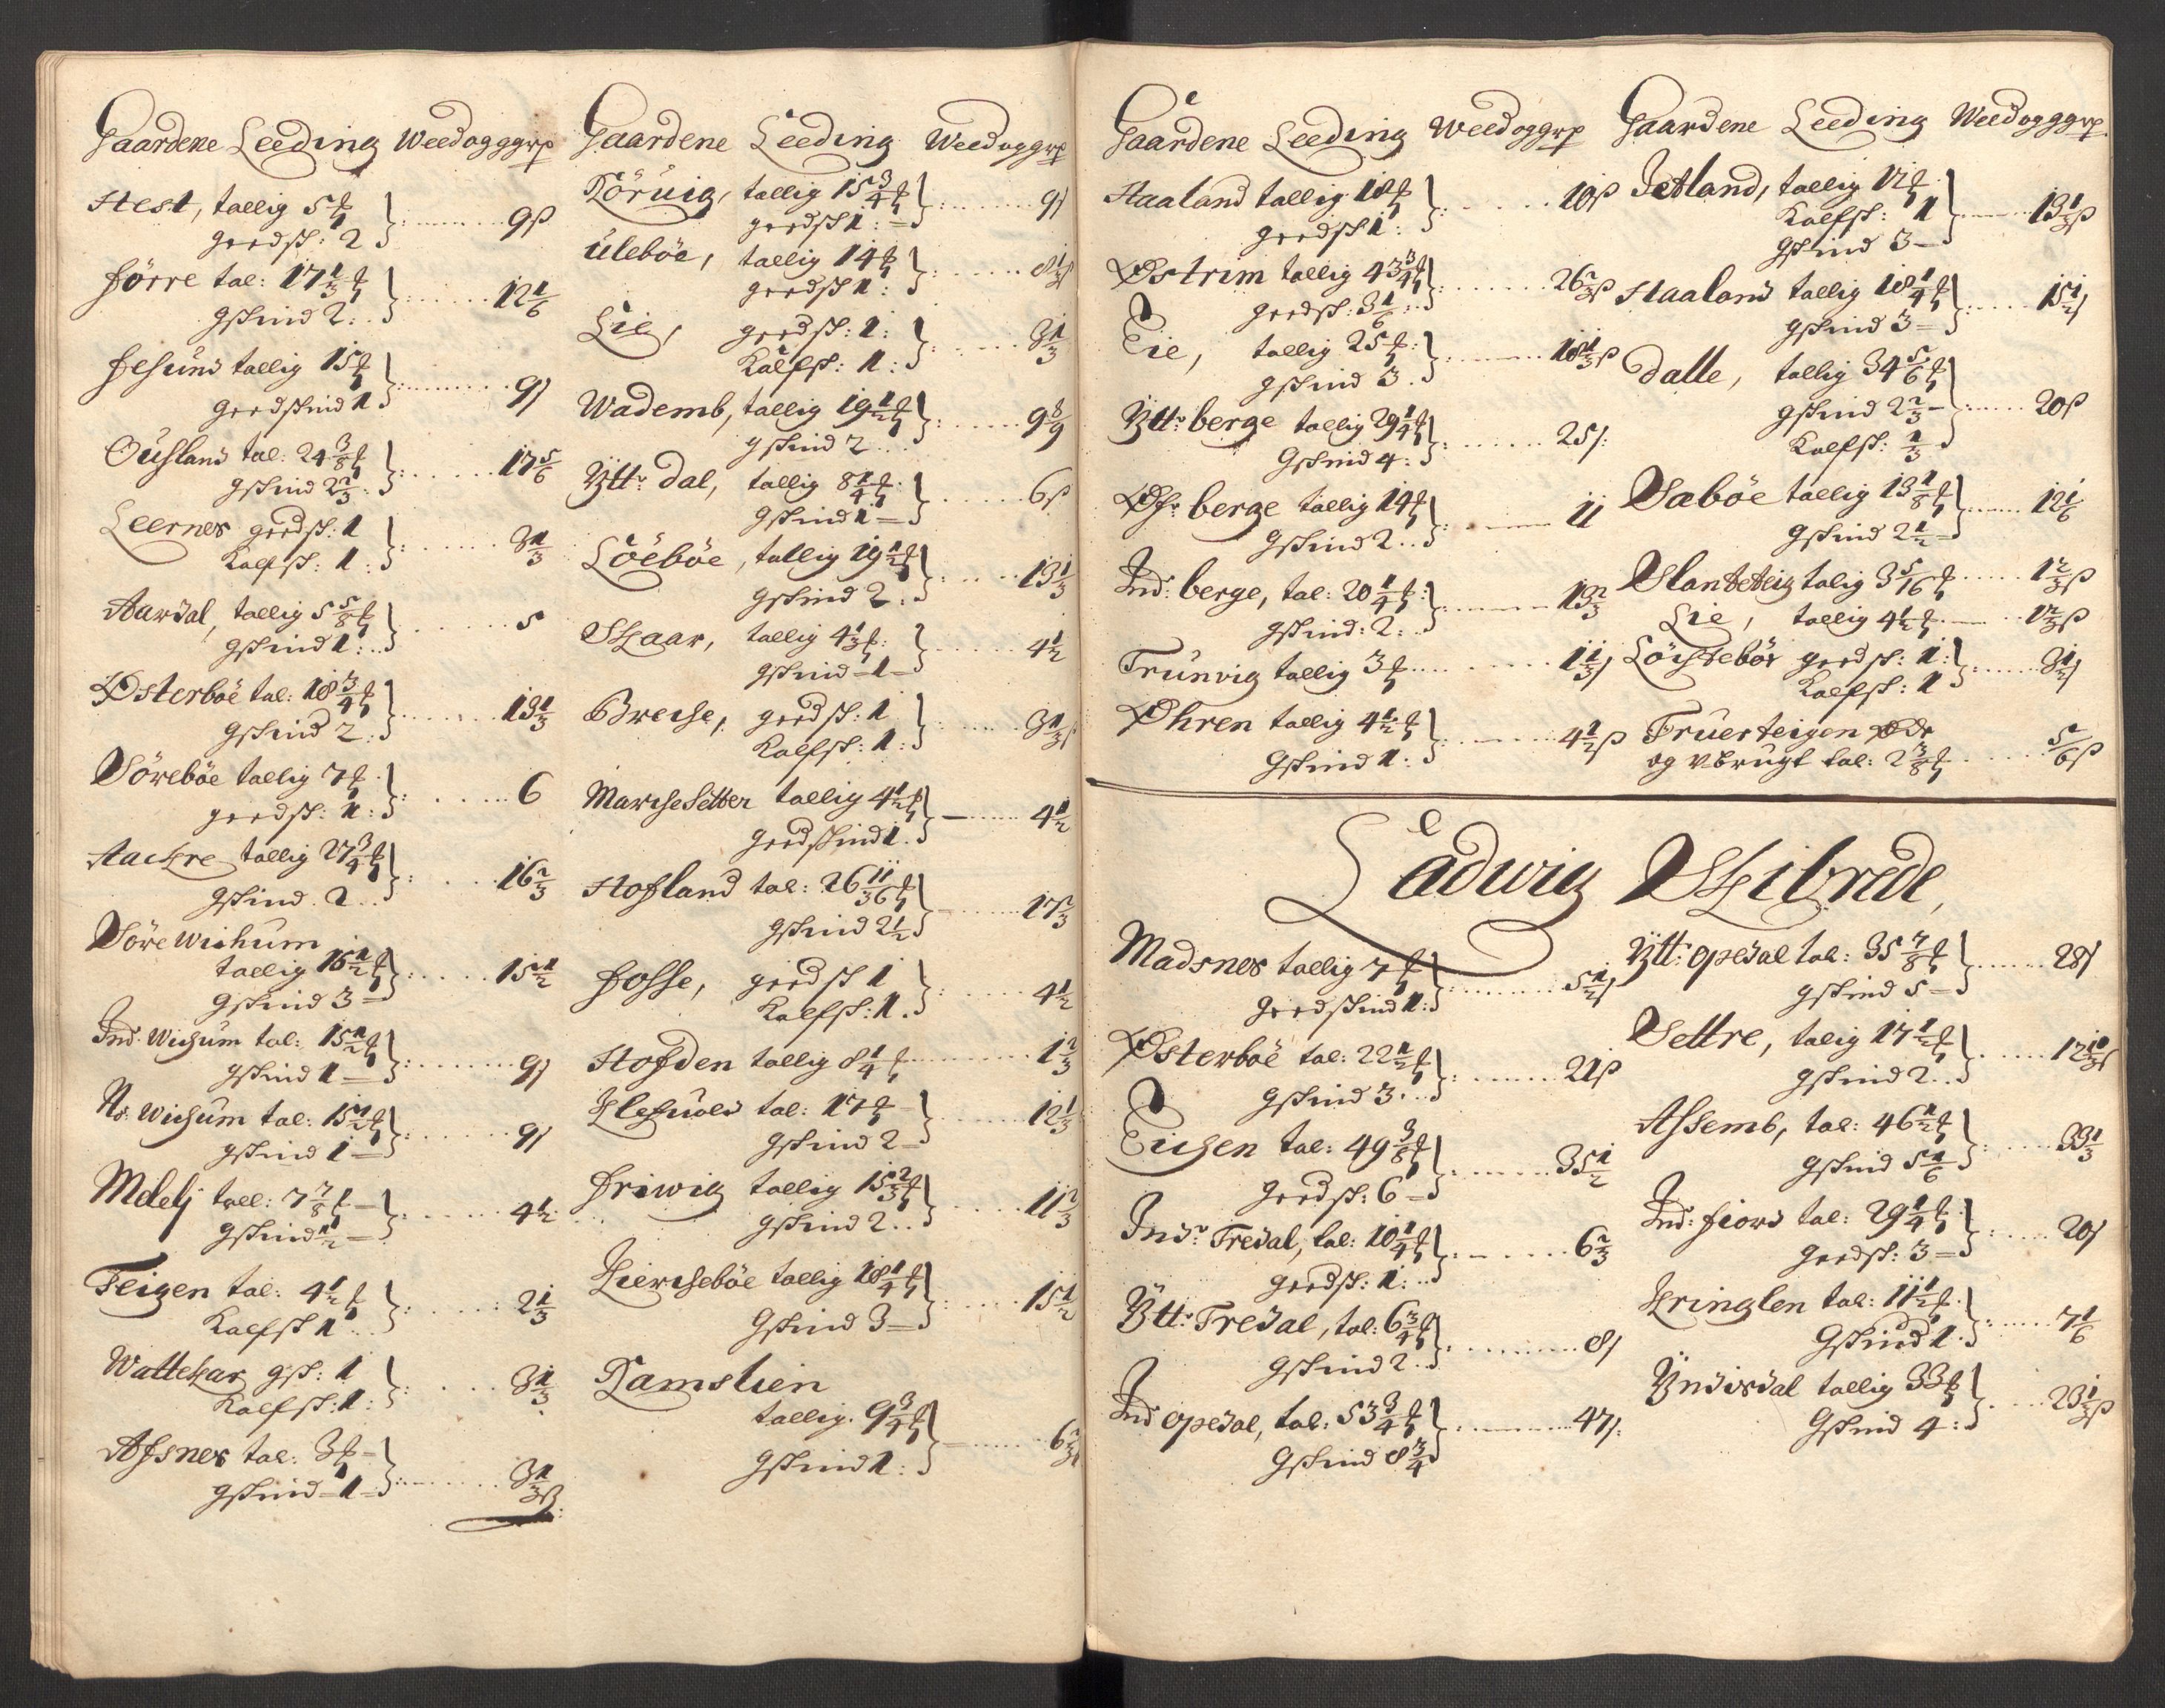 Gaardene Leeding Weedogggrp
Hest, tallig 5 ℔
geedsk: 2 } 9 ß
Førre tal: 17 1/3 ℔
gskind 2 } 12 1/6
Fesund tallig 15 ℔
geedskind 1 } 9 ß
Ousland tal: 24 3/8 ℔
gskind 2 2/3 } 17 5/6
Leernes geedsk: 1
Kalfsk: 1 } 3 1/3
Aardal, tallig 5 5/8 ℔
gskind 1 } 5
Østerboe tal: 18 3/4 ℔
gskind 2 } 13 1/3
Sørebøe tallig 7 ℔
geedsk: 1 } 6
Aackre tallig 27 3/4 ℔
gskind 2 } 16 2/3
Søre Wichum
tallig 16 1/2 ℔
gskind 3 } 15 1/2
Ind: Wichum tal: 15 1/2 ℔
gskind 1 } 9 ß
N: Wichum tal: 15 1/2 ℔
gskind 1 } 9 ß
Melelj tall: 7 7/8 ℔
gskind 1/2 } 4 1/2
Teigen tal: 4 1/2 ℔
Kalfsk 1 } 2 1/3
Wattekar gsk: 1
Kalfsk: 1 } 3 1/3
Assnes tal: 3 ℔
gskind 1 } 3 1/3 ß
Gaardene Leeding Weedoggrp
Rørvig, tallig 15 3/4 ℔
geedsk 1 } 9 ß
Ulebøe, tallig 14 ℔
geedsk 1 } 8 1/3 ß
Lie, geedsk: 1
Kalfsk: 1 } 3 1/3
Wademb, tallig 19 1/2 ℔
gskind 2 } 9 8/9
Ytt: dal, tallig 8 1/4 ℔
gskind 1 } 6 ß
Löebøe, tallig 19 1/2 ℔
gskind 2 } 13 1/3
Skaar, tallig 4 1/3 ℔
gskind 1 } 4 1/2
Brecke, geedsk: 1
Kalfsk: 1 } 3 1/3 ß
Marchesetter tallig 4 1/2 ℔
geedskind 1 } 4 1/2
Hofland tal: 26 11/36 ℔
gskind 2 1/2 } 17 2/3
Fosse, geedsk 1
Kalfsk: 1 } 4 1/2
Hofden tallig 8 1/4 ℔ 1 2/3
Klefuold tal: 17 ℔
gskind 2 } 12 1/3
Friwig tallig 15 2/3 ℔
gskind 2 } 11 2/3
Kierchebøe tallig 18 1/4 ℔
Gskind 3 } 15 1/2
Ramslien
tallig 9 3/4 ℔
gskind 1 } 6 2/3 ß
Gaardene Leeding Weedoggrp
Haaland tallig 18 ℔
geedsk 1 } 10 ß
Østrim tallig 43 3/4 ℔
geedsk: 3 1/6 } 26 2/3 ß
Eie, tallig 25 ℔
gskind 3 } 18 1/3 ß
Ytt: berge tallig 29 1/4 ℔
Gskind 4 } 25 ß
Øfr: berge tallig 14 ℔
Gskind 2 } 11
Ind: berge, tal: 20 1/4 ℔
gskind: 2 } 13 2/3
Trunvig tallig 3 ℔ 1 1/3 ß
Øhren tallig 4 1/2 ℔
Gskind 1 } 4 1/2 ß
Gaardene Leeding Weedogggrp
Jetland, tallig 17 ℔
Kalfsk: 1
gskind 3 } 13 1/3 ß
Haaland tallig 18 1/4 ℔
gskind 3 } 15 1/2 ß
Dalle, tallig 34 5/6 ℔
gskind 2 2/3
Kalfsk: 1/3 } 20 ß
Sæbøe tallig 13 1/8 ℔
gskind 2 1/2 } 12 1/6
Slanteteig talig 3 5/16 ℔ 1 2/3 ß
Lie, tallig 4 1/2 ℔ 1 2/3 ß
Löistebøe geedsk: 1
Kalfsk: 1 } 3 1/2 ß
Fruerteigen øde
og vbrugt tal: 2 3/8 ℔ 5/6 ß
Ladwig Skibrede,
Madsnes tallig 7 ℔
geedskind 1 } 5 1/2 ß
Østerboe tal: 22 1/2 ℔
gskind 3 } 21 ß
Eichen tal: 49 3/8 ℔
geedsk: 6 } 35 1/2
Ind: Tredal, tal: 10 1/4 ℔
geedsk: 1 } 6 2/3
Ytt: Tredal, tal: 6 3/4 ℔
gskind 2 } 8 ß
Ind opedal, tal: 53 3/4 ℔
Gskind 8 3/4 } 47 ß
Ytt: opedal tal: 35 7/8 ℔
gskind 5 } 28 ß
Settre, talig 17 1/2 ℔
gskind 2 } 12
Assemb, tal: 46 1/2 ℔
gskind 5 1/6 } 33 1/3
Ind: fiord tal: 29 1/4 ℔
geedsk: 3 } 20 ß
Kringlen tal: 11 1/2 ℔
Gskind 1 } 7 1/6
Yndisdal tallig 33 ℔
Gskind 4 } 23 1/3 ß